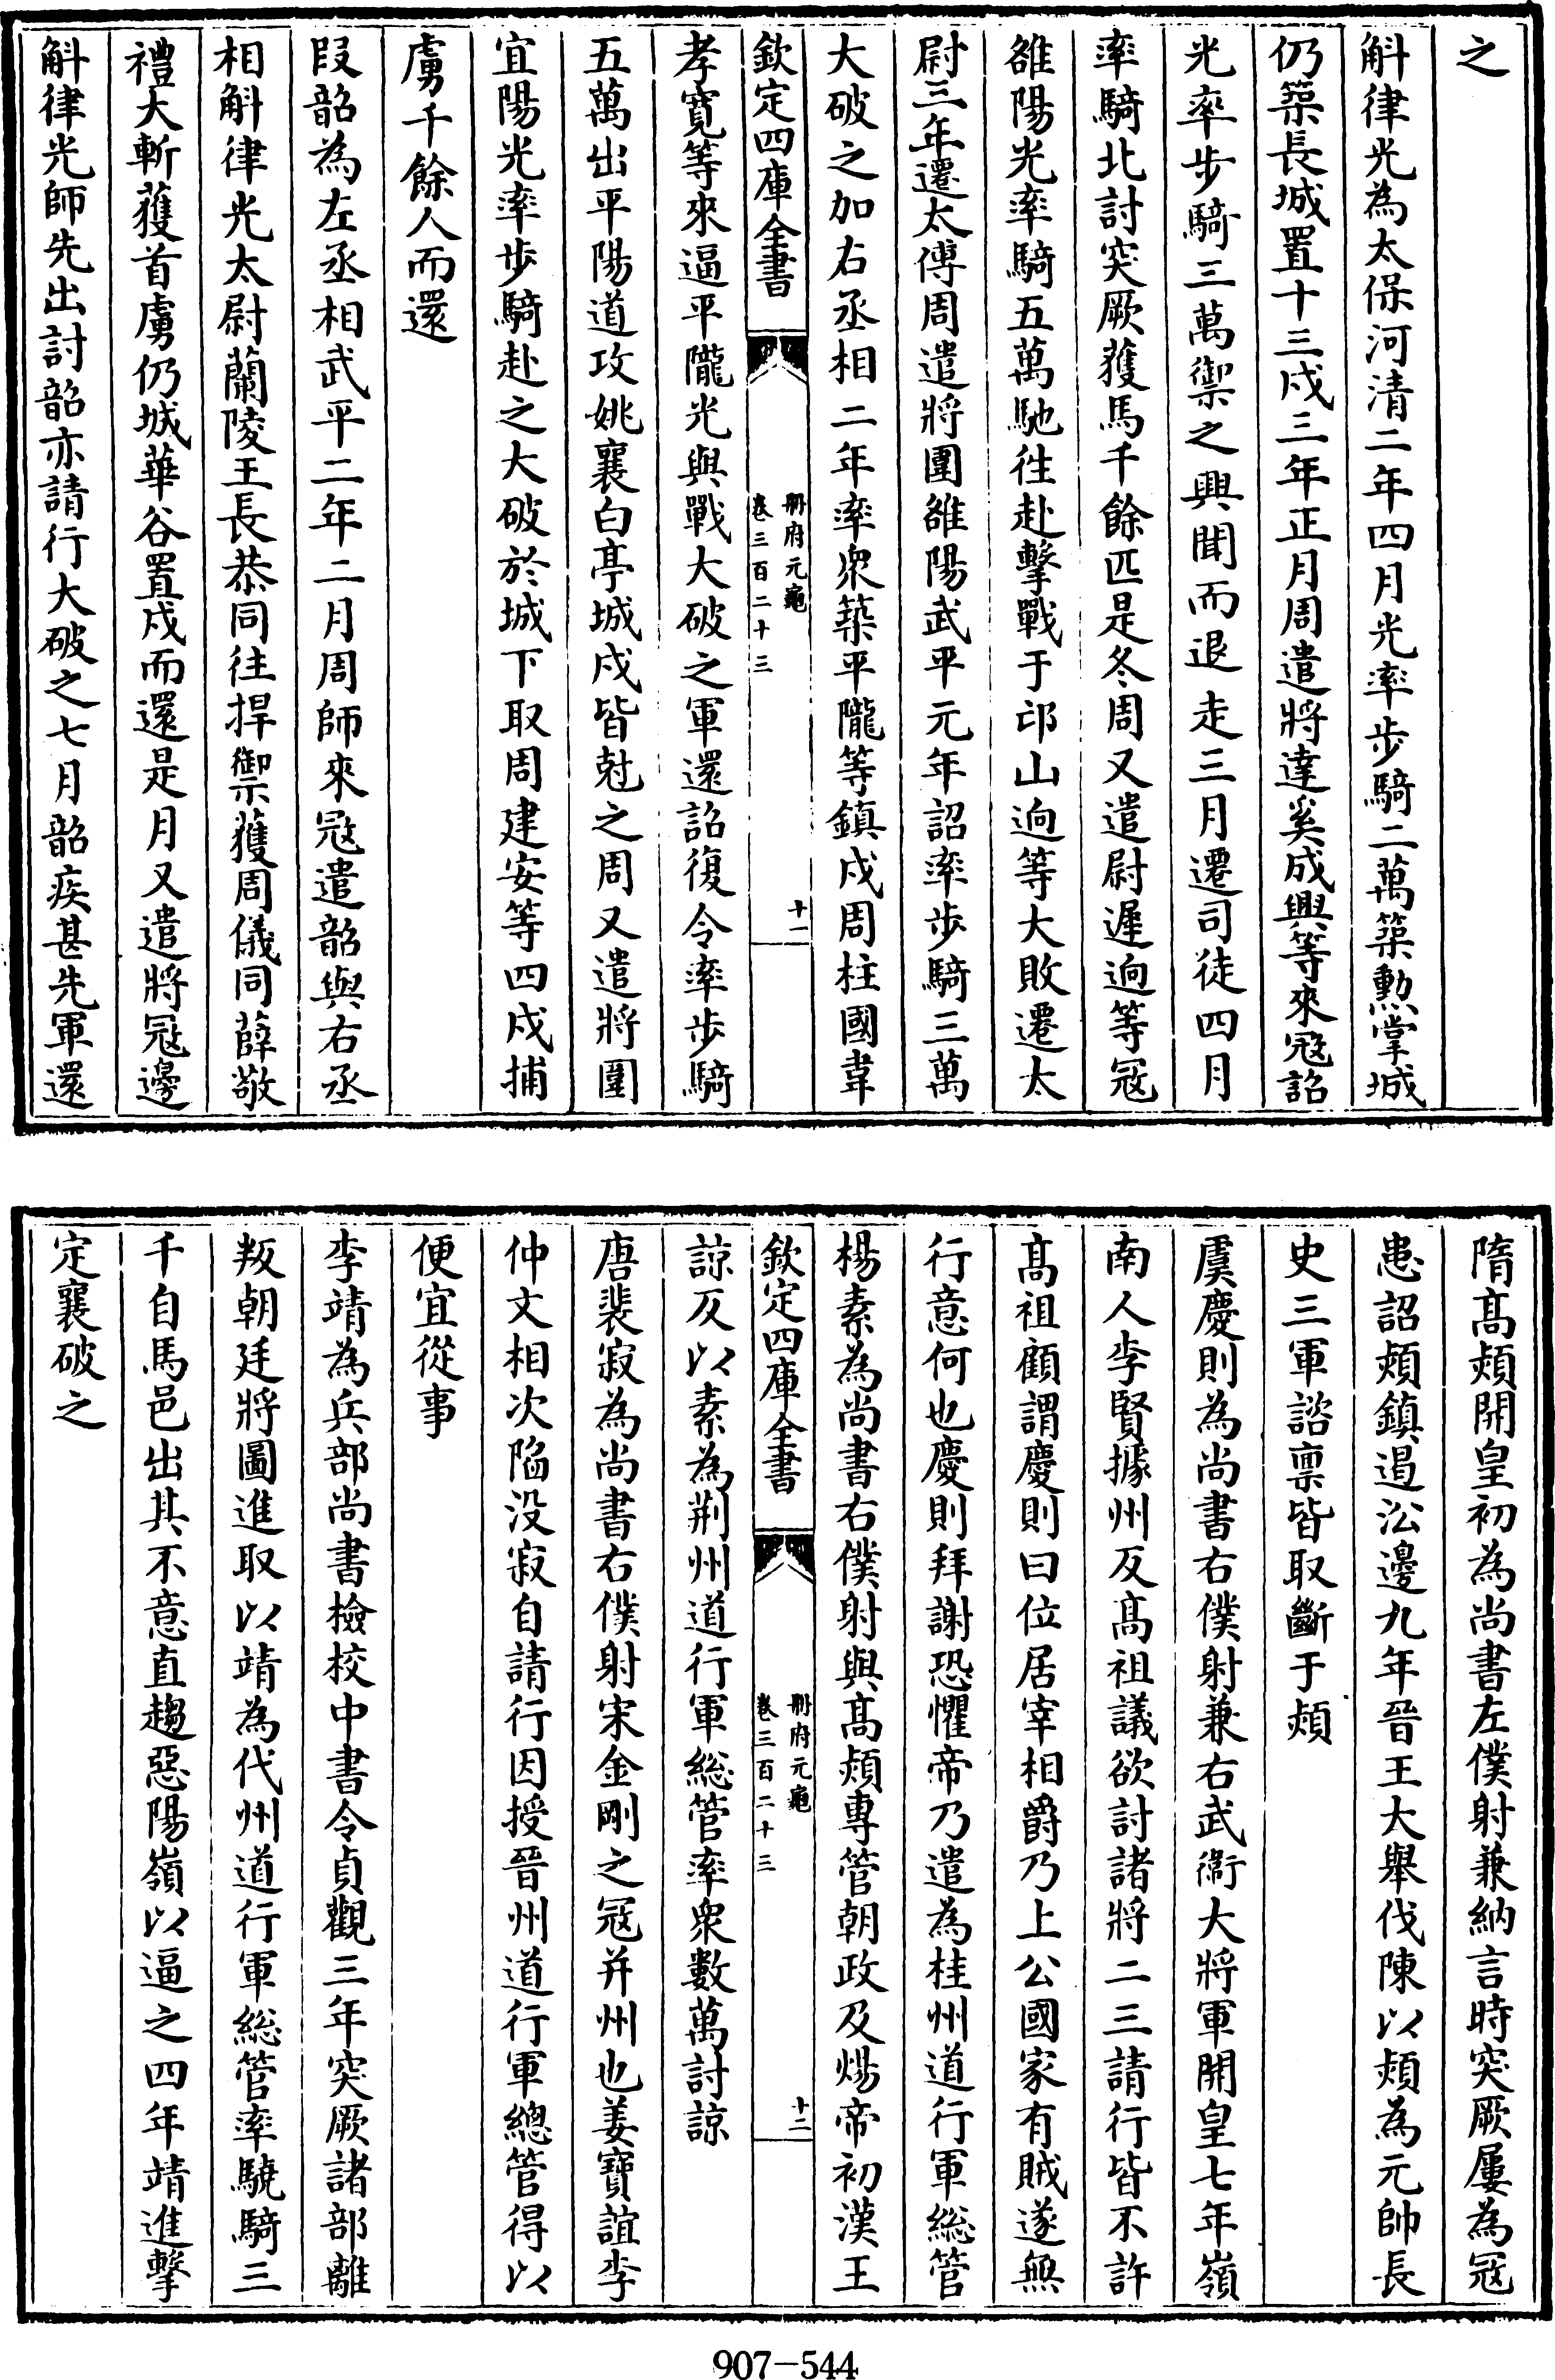 之
斛律光為太保河清二年四月光率步騎二萬築勲掌城
仍築長城置十三戍三年正月周遣將達奚成興等來冦詔
光率步騎三萬禦之興聞而退走三月遷司徒四月
率騎北討突厥獲馬千餘匹是冬周又遣尉遲迥等冦
雒陽光率騎五萬馳徃赴擊戰于邙山迥等大敗遷太
尉三年遷太傅周遣將圍雒陽武平元年詔率步騎三萬
大破之加右丞相二年率衆築平隴等鎮戍周柱國韋
欽定四庫全書
冊府元龜
卷三百二十三
十一
孝寛等來逼平隴光與戰大破之軍還詔復令率步騎
五萬出平陽道攻姚襄白亭城戍皆尅之周又遣將圍
宜陽光率步騎赴之大破於城下取周建安等四戍捕
虜千餘人而還
段韶為左丞相武平二年二月周師來冦遣韶與右丞
相斛律光太尉蘭陵王長恭同往捍禦獲周儀同薛敬
禮大斬獲首虜仍城華谷置戍而還是月又遣將冦邊
斛律光師先出討韶亦請行大破之七月韶疾甚先軍還
隋髙熲開皇初為尚書左僕射兼納言時突厥屢為冦
患詔熲鎮遏㳂邊九年晉王大舉伐陳以熲為元帥長
史三軍諮禀皆取斷于熲
虞慶則為尚書右僕射兼右武衞大將軍開皇七年嶺
南人李賢據州反髙祖議欲討諸將二三請行皆不許
髙祖顧謂慶則曰位居宰相爵乃上公國家有賊遂無
行意何也慶則拜謝恐懼帝乃遣為桂州道行軍総管
楊素為尚書右僕射與髙熲專管朝政及煬帝初漢王
欽定四庫全書
冊府元龜
卷三百二十三
十二
諒反以素為荆州道行軍総管率衆數萬討諒
唐裴寂為尚書右僕射宋金剛之冦并州也姜寶誼李
仲文相次陷没寂自請行因授晉州道行軍總管得以
便宜從事
李靖為兵部尚書檢校中書令貞觀三年突厥諸部離
叛朝廷將圖進取以靖為代州道行軍総管率驍騎三
千自馬邑出其不意直趨惡陽嶺以逼之四年靖進擊
定襄破之
907-544